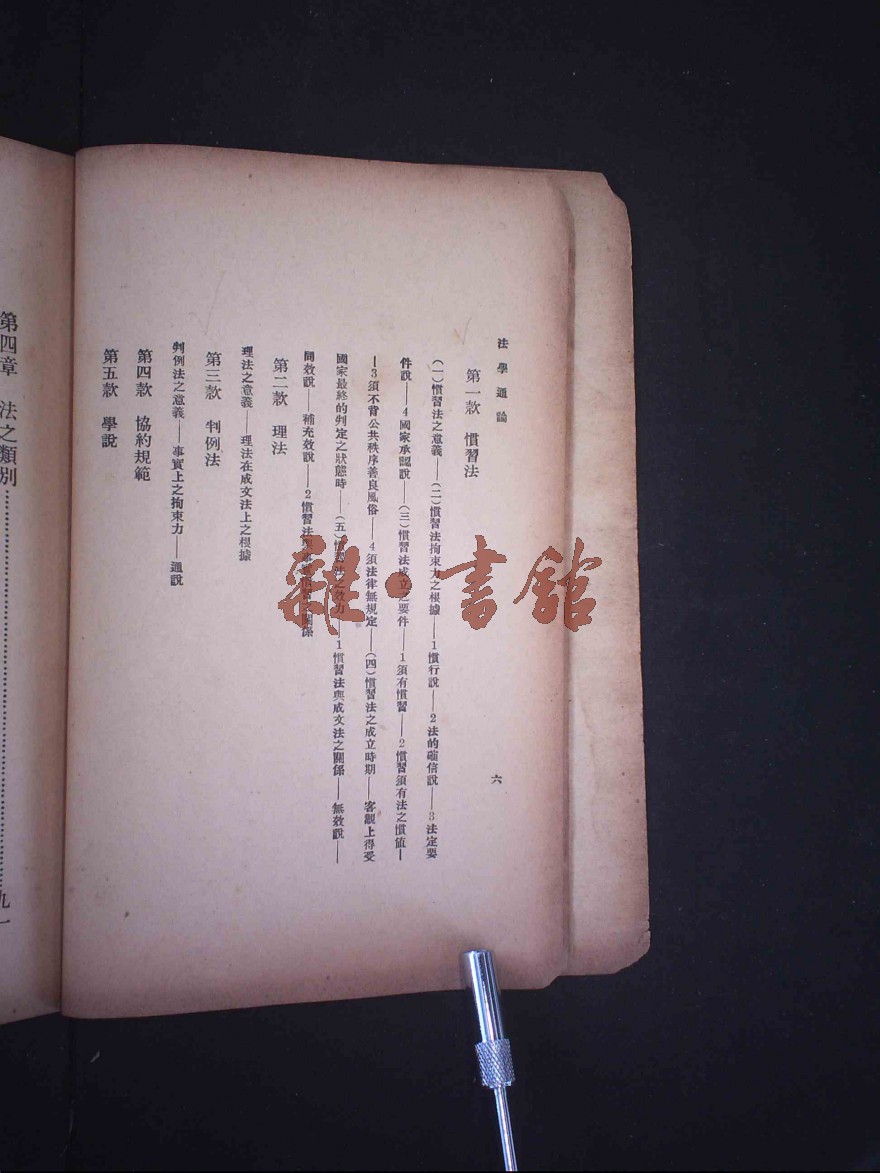 法學通論
六
第一款 慣習法
(一)慣習法之意義——(二)慣習法拘束力之根據——1慣行說——2法的確信說——3法定要
件說——4國家承認說——(三)慣習法成立之要件——1須有慣習——2慣習須有法之價値—
—3須不背公共秩序善良風俗——4須法律無規定——(四)慣習法之成立時期——客觀上得受
國家最終的判定之狀態時——(五)慣習法之效力——1慣習法與成文法之關係——無效說——
同效說——補充效說——2慣習法與 慣習之關係
第二款 理法
理法之意義——理法在成文法上之根據
第三款 判例法
判例法之意義——事實上之拘束力——通說
第四款 協約規範
第五款 學說
第四章 法之類別……九一
雜·書館